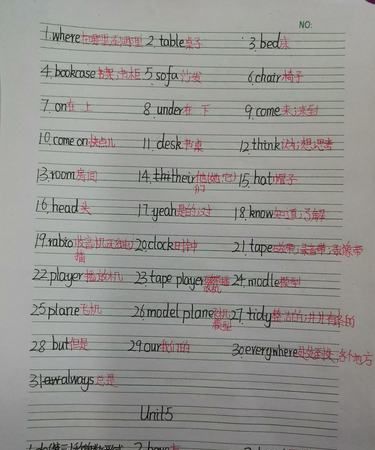 NO:
1.where在哪里;到哪里 2.table桌子 3.bed床
4.bookcase书架;书柜 5.sofa沙发 6.chair椅子
7.on在上 8.under在下 9.come来;来到
10.come on快点儿 11.desk书桌 12.think认为;想;思考
13.room房间 14.their他(她;它)们 15.hat帽子
16.head头 17.yeah是的;对 18.know知道;了解
19.rabio收音机;无线电广播 20.clock时钟 21.tape磁带;录音带;录像带
22.player播放机 23.tape player 24.modle模型
25.plane飞机 26.model plane飞机模型 27.tidy整洁的;井井有条的
28.but但是 29.our我们的 30.everywhere处处;到处;各个地方
31.always总是
Unit5